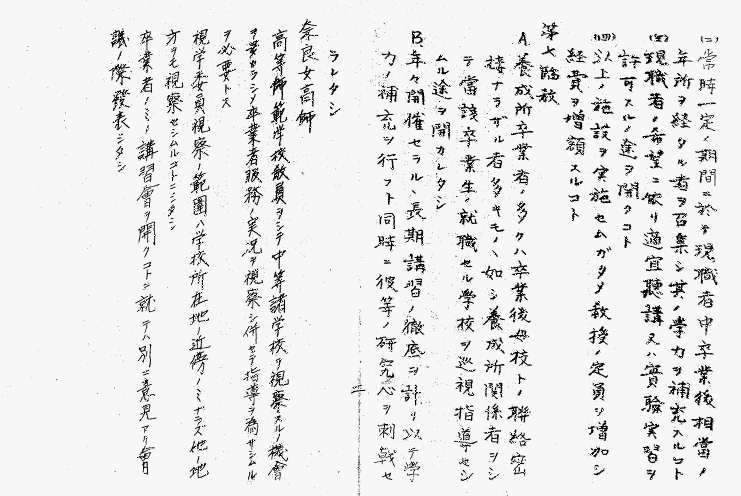 (二)常時一定ノ期間ニ於テ現職者中卒業後相當ノ
年所ヲ経タル者ヲ召集シ其ノ學力ヲ補充スルコト
(三)現職者ノ希望ニ依リ適宜聽講又ハ實驗実習ヲ
許可スルノ途ヲ開クコト
(四)以上ノ施設ヲ実施セムガタメ教授ノ定員ヲ増加シ
経費ヲ増額スルコト
第七臨教
A.養成所卒業者ノ多クハ卒業後母校トノ聯絡密
接ナラザル者多キモノヽ如シ養成所関係者ヲシ
テ當該卒業生ノ就職セル学校ヲ巡視指導セシ
ムル途ヲ開カレタシ
B.年々開催セラルヽ長期講習ノ徹底ヲ計リ以テ学
力ノ補充ヲ行フト同時ニ彼等ノ研究心ヲ刺戟セ
ラレタシ
奈良女高師
高等師範学校教員ヲシテ中等諸学校ヲ視察スルノ機會
ヲ多カラシメ卒業者服務ノ実況ヲ視察シ併セテ指導ヲ為サシムル
ヲ必要トス
視学委員視察ノ範圍ハ学校所在地ノ近傍ノミナラズ他ノ地
方ヲモ視察セシムルコトニシタシ
卒業者ノミノ講習會ヲ開クコトニ就テハ別ニ意見アリ會
議ノ際發表シタシ